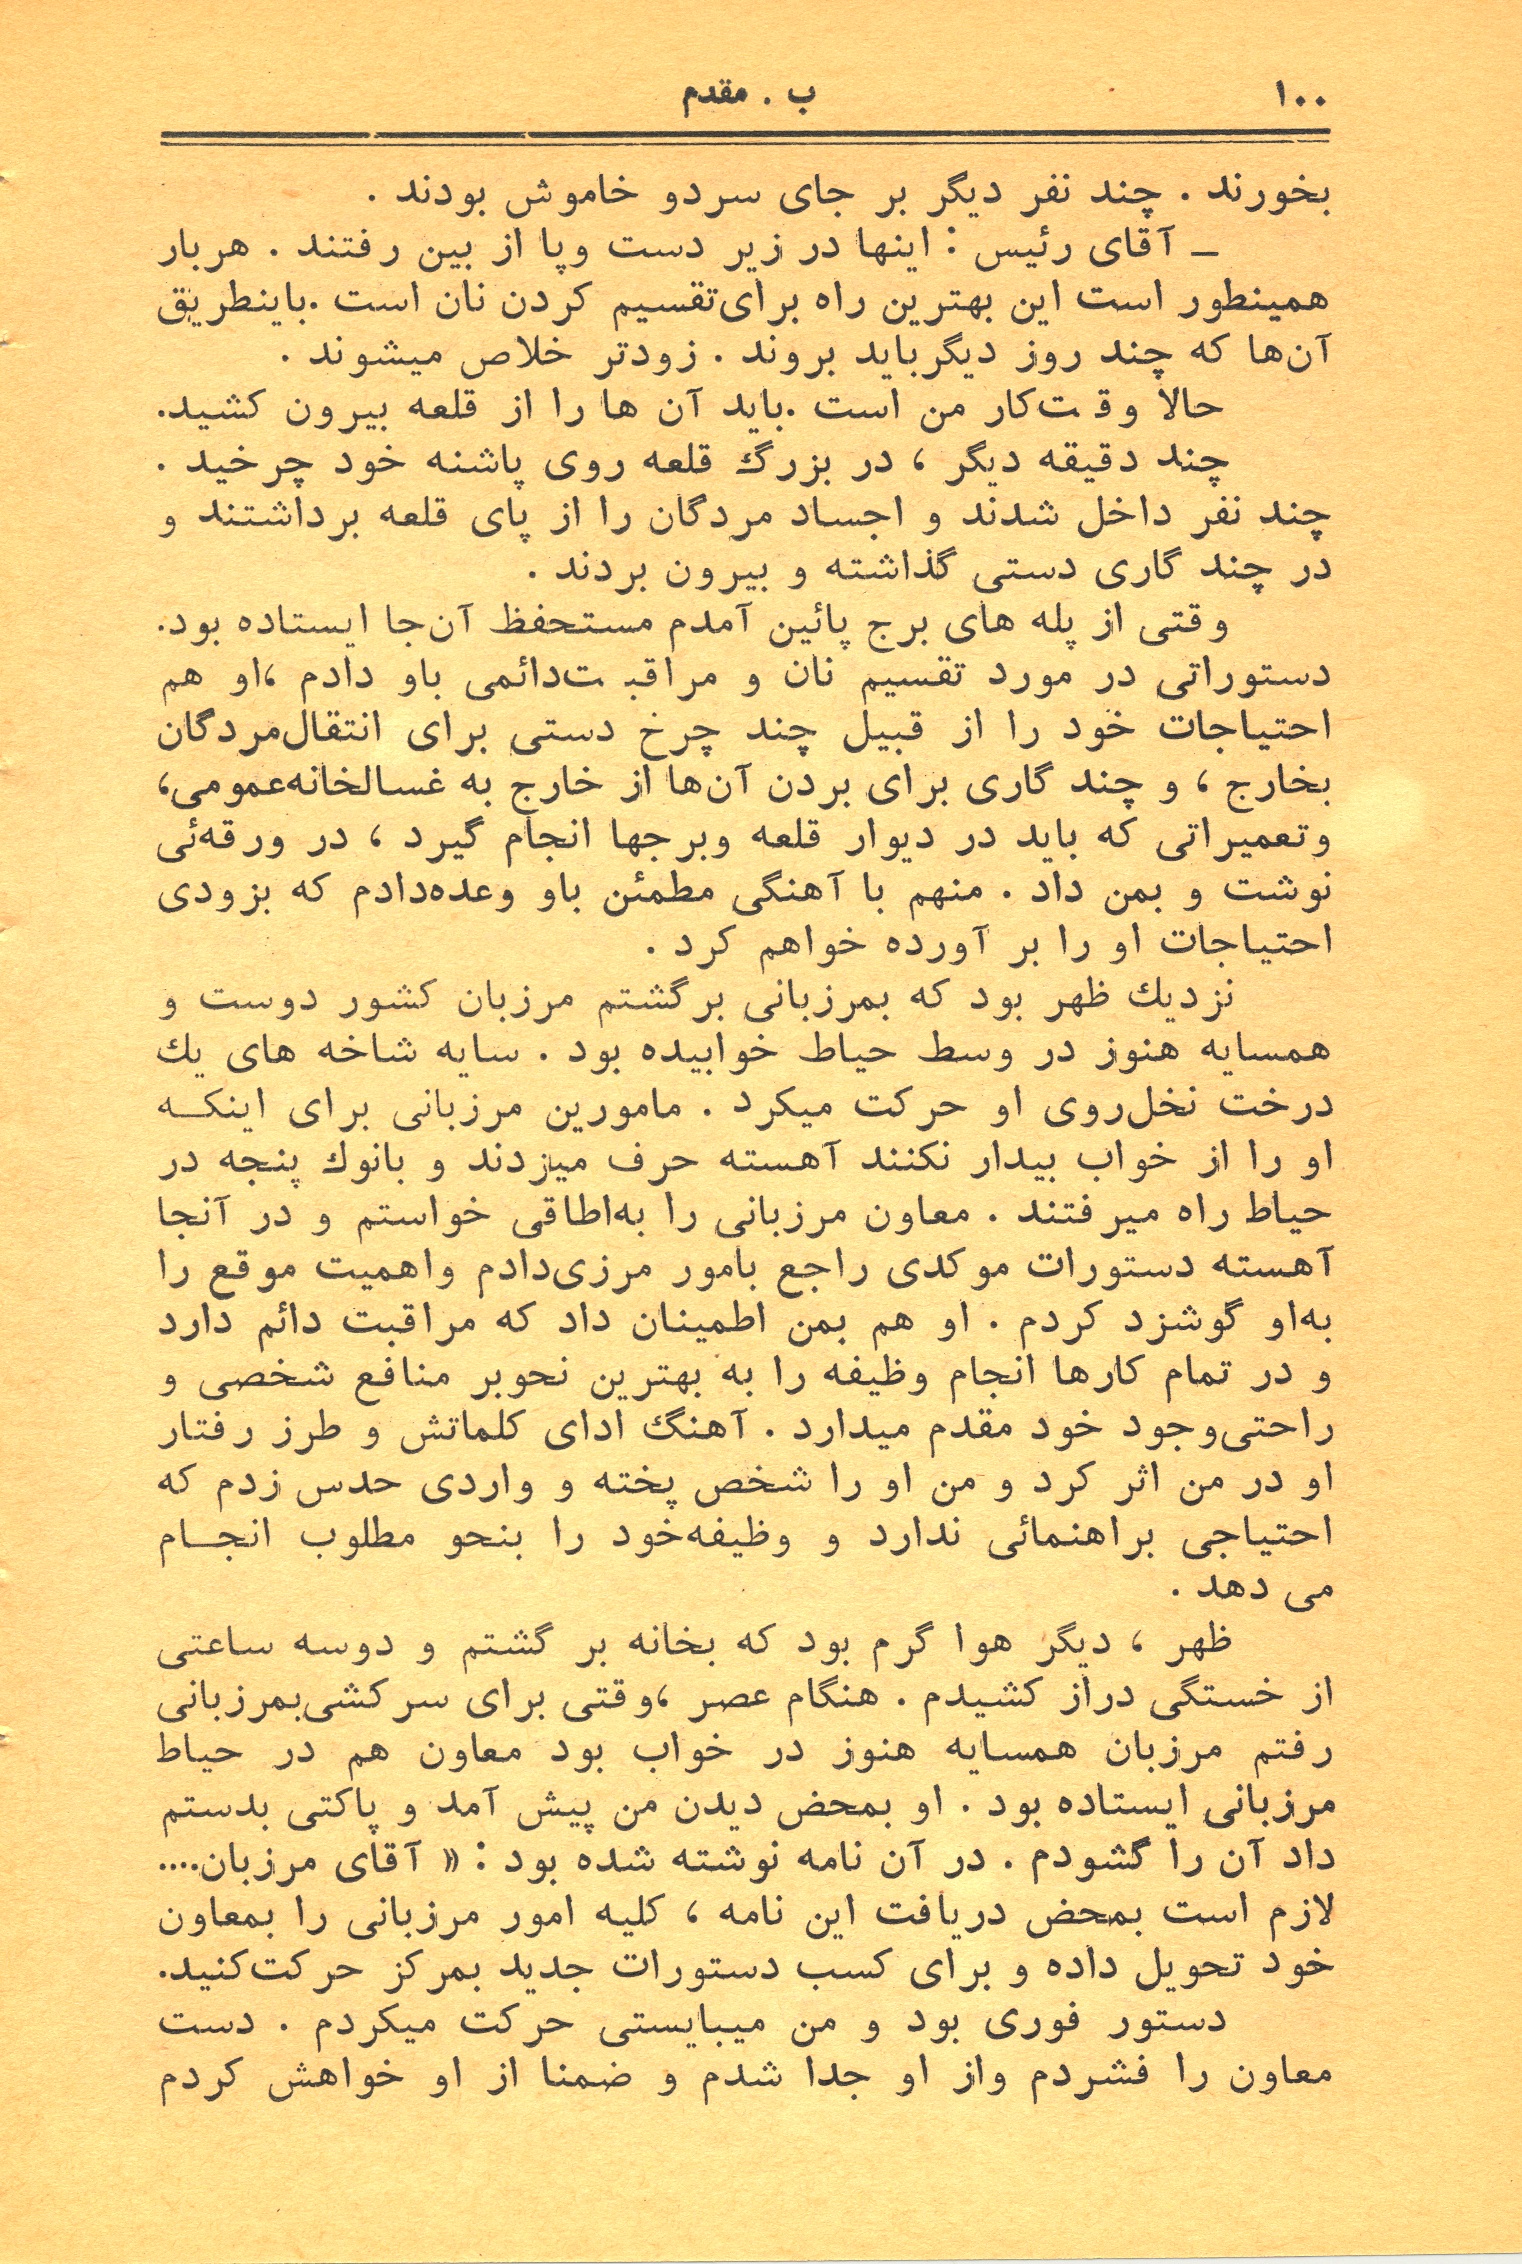 ۱۰۰ ب . مقدم
بخورند . چند نفر دیگر بر جای سردو خاموش بودند .
ـ آقای رئیس : اینها در زیر دست وپا از بین رفتند . هربار
همینطور است این بهترین راه برای تقسیم کردن نان است .باینطریق
آن‌ها که چند روز دیگر باید بروند . زودتر خلاص میشوند .
حالا وقت کار من است .باید آن ها را از قلعه بیرون کشید.
چند دقیقه دیگر ، در بزرگ قلعه روی پاشنه خود چرخید .
چند نفر داخل شدند و اجساد مردگان را از پای قلعه برداشتند و
در چند گاری دستی گذاشته و بیرون بردند .
وقتی از پله های برج پائین آمدم مستحفظ آن‌جا ایستاده بود.
دستوراتی در مورد تقسیم نان و مراقبت دائمی باو دادم ،او هم
احتیاجات خود را از قبیل چند چرخ دستی برای انتقال مردگان
بخارج ، و چند گاری برای بردن آن‌ها از خارج به غسالخانه عمومی،
وتعمیراتی که باید در دیوار قلعه وبرجها انجام گیرد ، در ورقه‌ئی
نوشت و بمن داد . منهم با آهنگی مطمئن باو وعده‌دادم که بزودی
احتیاجات او را بر آورده خواهم کرد .
نزدیك ظهر بود که بمرزبانی برگشتم مرزبان کشور دوست و
همسایه هنوز در وسط حیاط خوابیده بود . سایه شاخه های یك
درخت نخل روی او حرکت میکرد . مامورین مرزبانی برای اینکـه
او را از خواب بیدار نکنند آهسته حرف میزدند و بانوك پنجه در
حیاط راه میرفتند . معاون مرزبانی را به‌اطاقی خواستم و در آنجا
آهسته دستورات موکدی راجع بامور مرزی‌دادم واهمیت موقع را
به‌او گوشزد کردم . او هم بمن اطمینان داد که مراقبت دائم دارد
و در تمام کارها انجام وظیفه را به بهترین نحوبر منافع شخصی و
راحتی‌وجود خود مقدم میدارد . آهنگ ادای کلماتش و طرز رفتار
او در من اثر کرد و من او را شخص پخته و واردی حدس زدم که
احتیاجی براهنمائی ندارد و وظیفه‌خود را بنحو مطلوب انجـام
می دهد .
ظهر ، دیگر هوا گرم بود که بخانه بر گشتم و دوسه ساعتی
از خستگی دراز کشیدم . هنگام عصر ،وقتی برای سرکشی بمرزبانی
رفتم مرزبان همسایه هنوز در خواب بود معاون هم در حیاط
مرزبانی ایستاده بود . او بمحض دیدن من پیش آمد و پاکتی بدستم
داد آن را گشودم . در آن نامه نوشته شده بود : « آقای مرزبان....
لازم است بمحض دریافت این نامه ، کلیه امور مرزبانی را بمعاون
خود تحویل داده و برای کسب دستورات جدید بمرکز حرکت‌کنید.
دستور فوری بود و من میبایستی حرکت میکردم . دست
معاون را فشردم واز او جدا شدم و ضمنا از او خواهش کردم